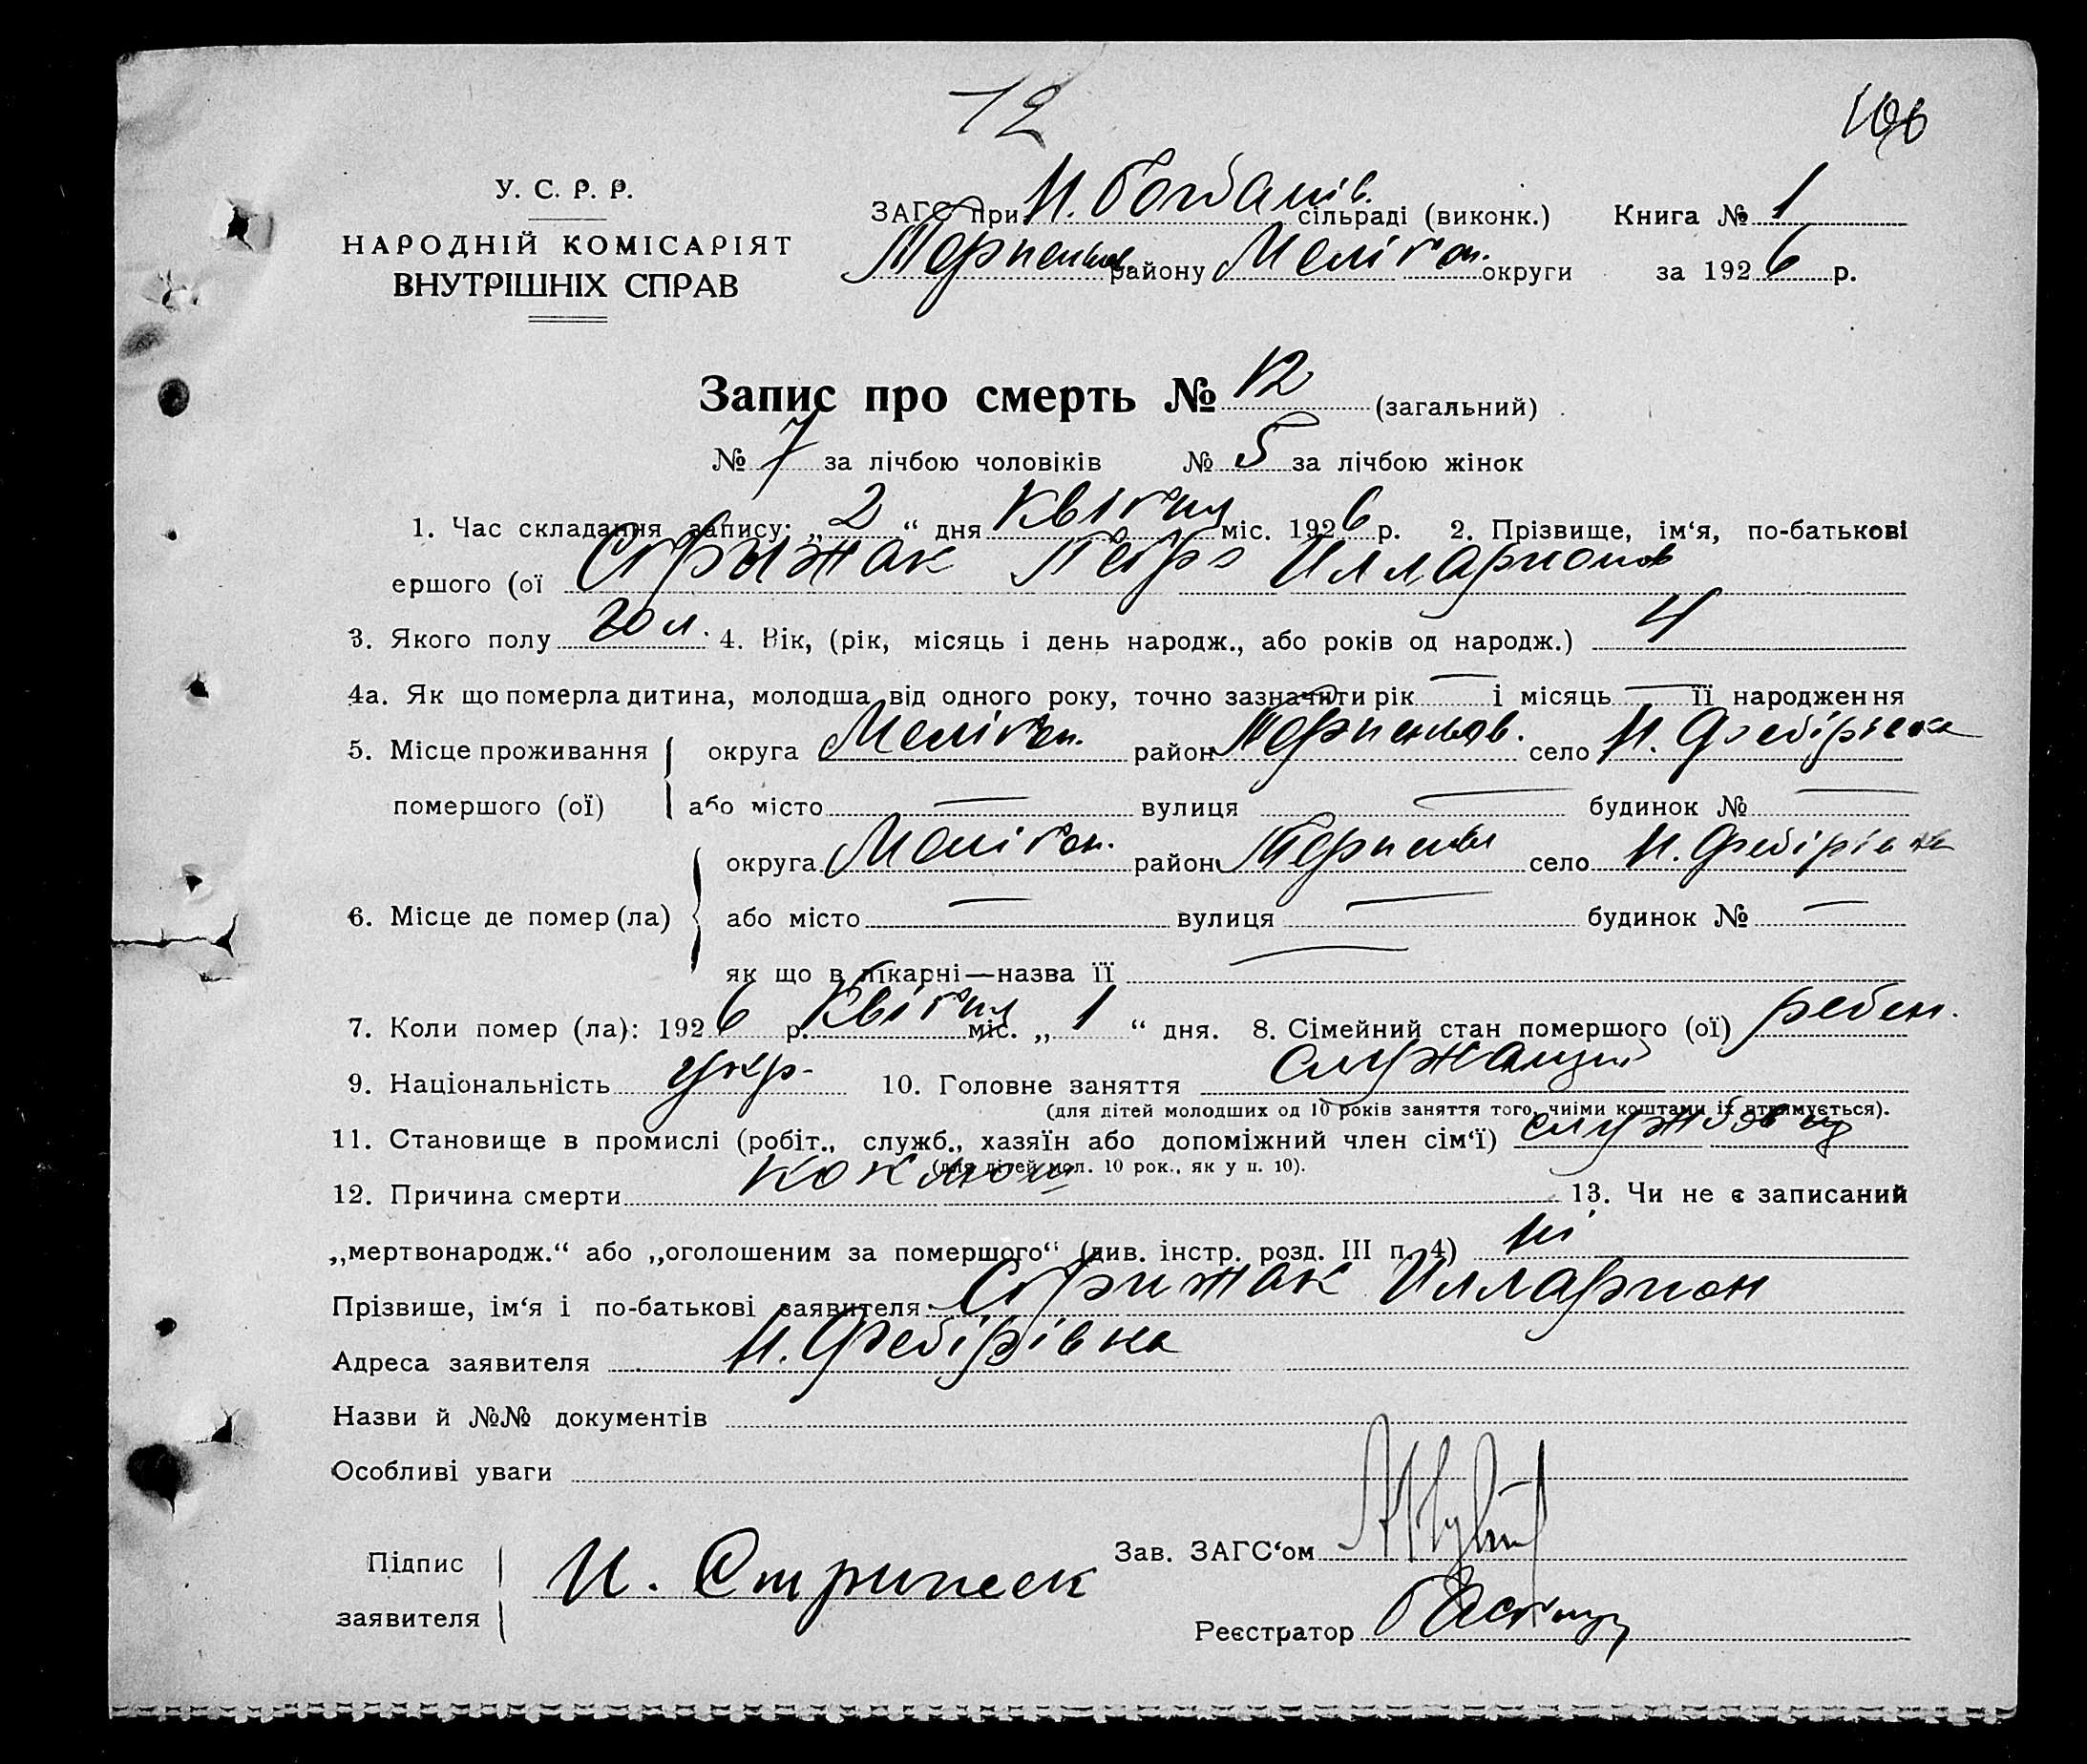 12
106
У. С. Р. Р.
НАРОДНІЙ КОМІСАРІЯТ
ВНУТРІШНІХ СПРАВ
ЗАГС при Н. Богданів. сільраді (виконк.) Книга № 1
Терпеньев району Мелітоп. округи за 1926 р.
Запис про смерть № 12 (загальний)
№ 7 за лічбою чоловіків № 5 за лічбою жінок
1. Час складання запису: „2“ дня Квітня міс. 1926 р. 2. Прізвище, ім‘я, по-батькові
ершого (ої Стрыжак Петро Илларионов
3. Якого полу чол. 4. Вік, (рік, місяць і день народж., або років од народж.) 4
4а. Як що померла дитина, молодша від одного року, точно зазначити рік — і місяць — її народження
5. Місце проживання округа Мелітоп. район Терпеньев. село Н. Федірівка
помершого (ої) або місто — вулиця — будинок № —
округа Мелітоп. район село Н. Федірівка
6. Місце де помер (ла) або місто — вулиця — будинок № —
як що в лікарні—назва її —
7. Коли помер (ла): 1926 р. Квітня міс. „1“ дня. 8. Сімейний стан помершого (ої) ребен.
9. Національність укр. 10. Головне заняття служащий
(для дітей молодших од 10 років заняття того, чиїми коштами їх втримується).
11. Становище в промислі (робіт., служб., хазяїн або допоміжний член сім‘ї)
(для дітей мол. 10 рок., як у п. 10).
12. Причина смерти коклюш 13. Чи не є записаний
„мертвонародж.“ або „оголошеним за помершого“ (див. інстр. розд. III п. 4) ні
Прізвише, ім‘я і по-батькові заявителя: Стрижак Илларион
Адреса заявителя Н. Федірівка
Назви й №№ документів
Особливі уваги
Підпис
заявителя И. Стрижак
Зав. ЗАГС‘ом
Реєстратор